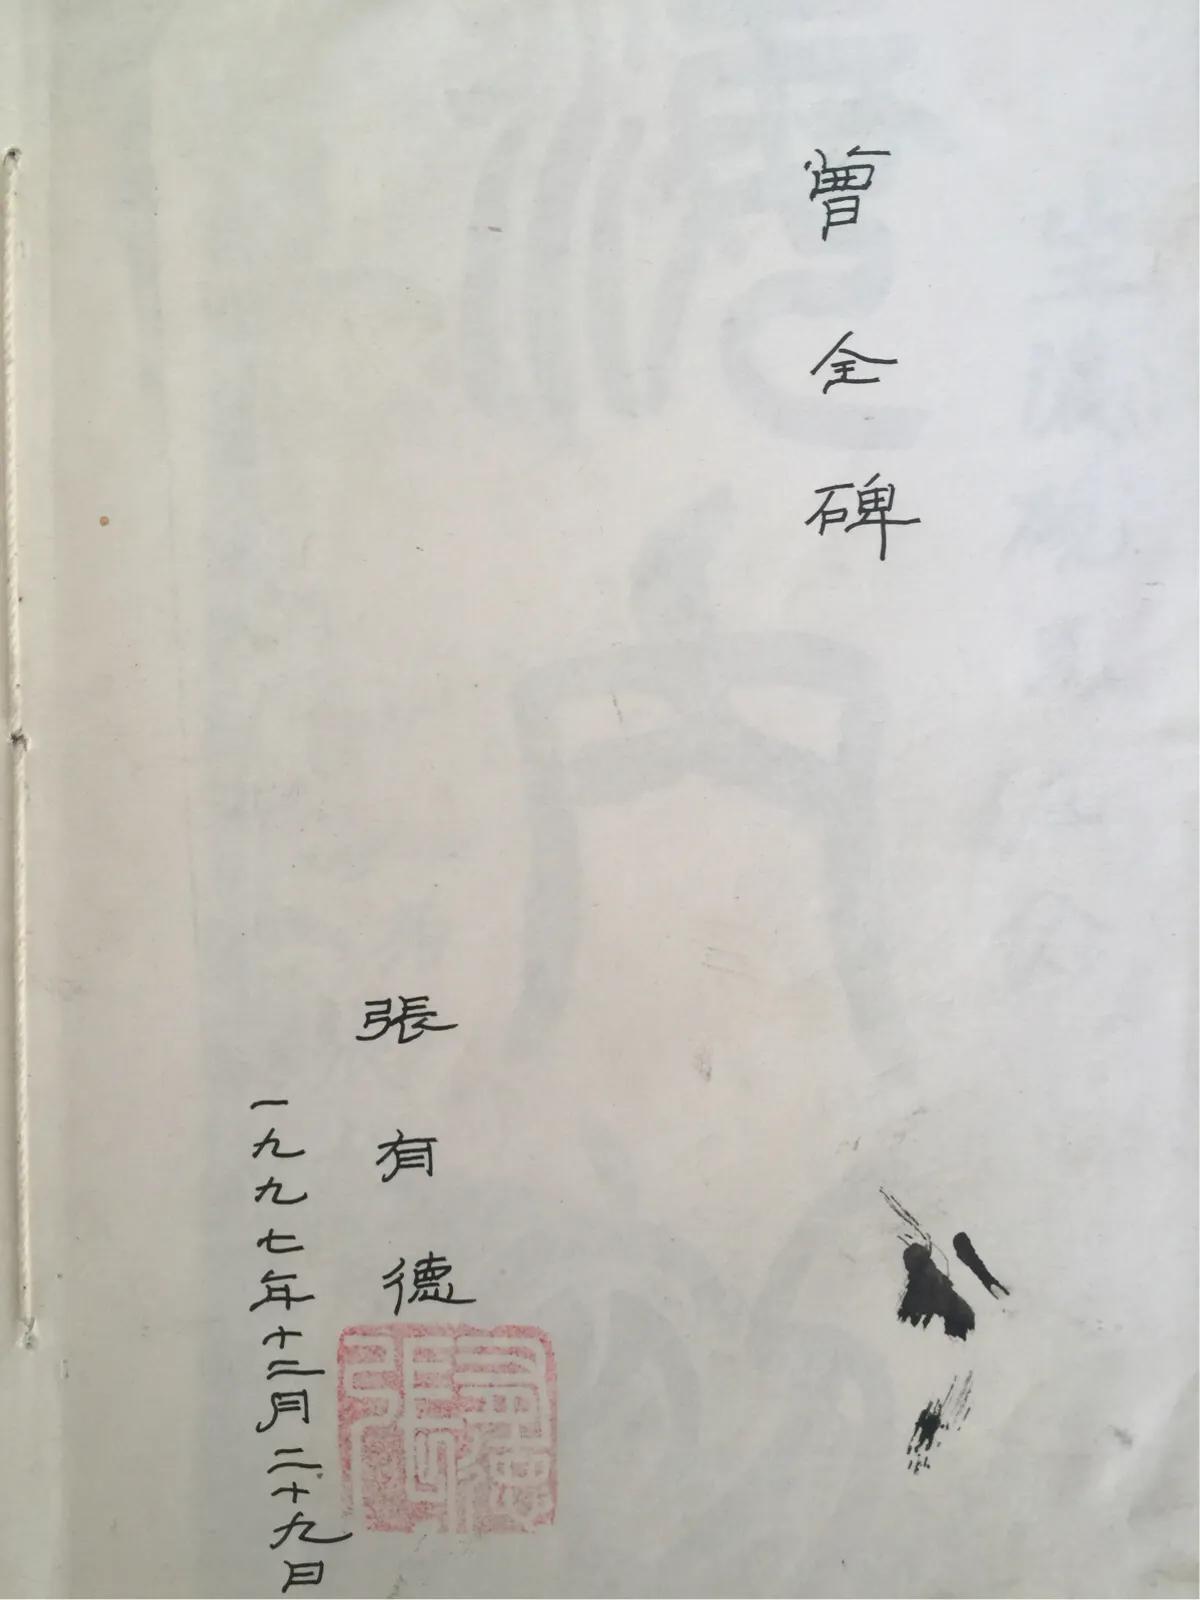 曹全碑
張有德
一九九七年十二月二十九日